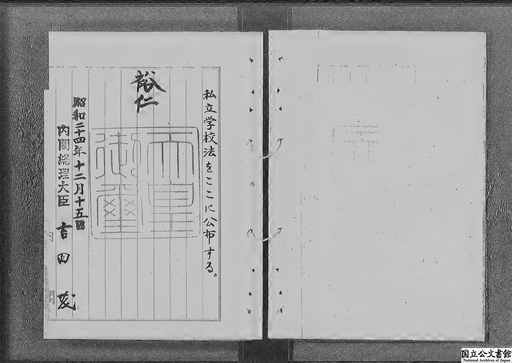 私立学校法をここに公布する。
裕仁
天皇
御璽
昭和二十四年十二月十五日
内閣総理大臣 吉田茂
国立公文書館
National Archives of Japan